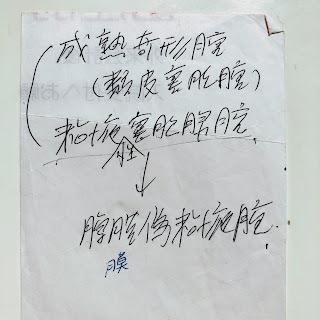 成熟奇形腫
(類皮嚢胞腫)
粘液嚢胞腺腫
性
↓
腹腔偽粘液腫
膜